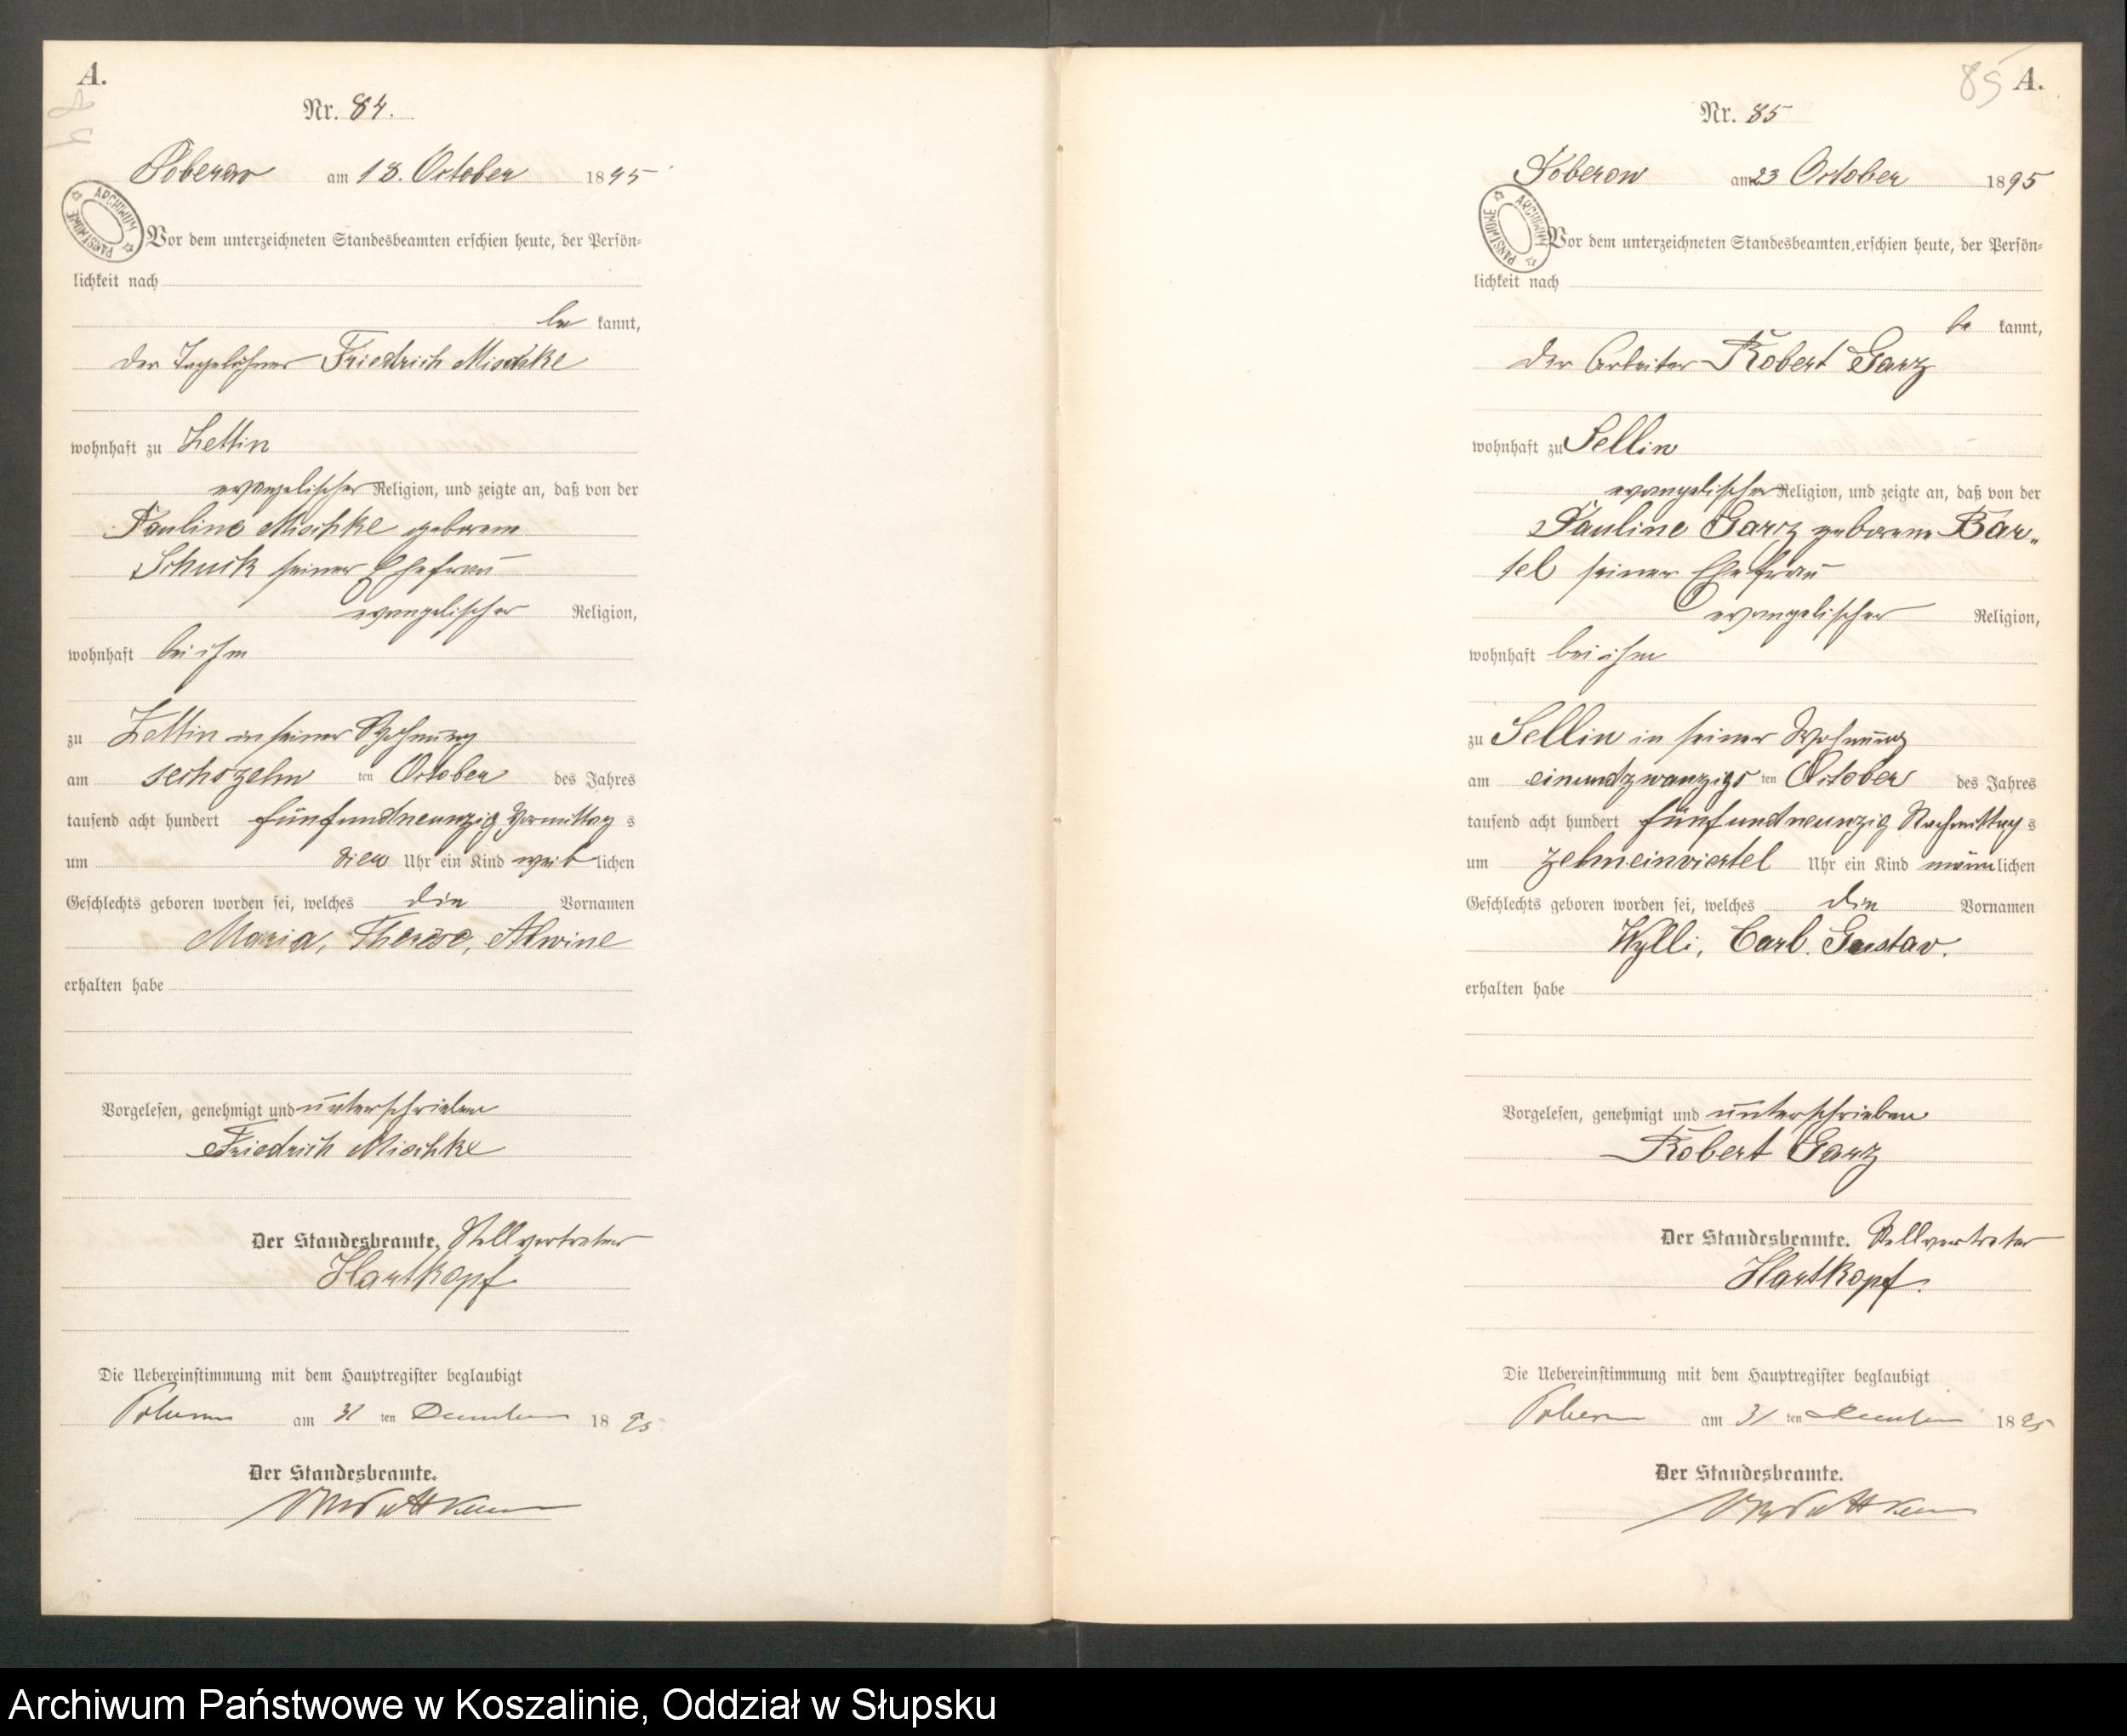 A.
Nr. 84.
Poberow am 18. October 1895
ARCHIWUM PAŃSTWOWE
Vor dem unterzeichneten Standesbeamten erschien heute, der Persön-
lichkeit nach
be kannt,
der Tagelöhner Friedrich Mischke
wohnhaft zu Zettin
evangelischer Religion, und zeigte an, daß von der
Pauline Mischke geborene
Schuik seiner Ehefrau
evangelischer Religion,
wohnhaft bei ihm
zu Zettin in seiner Wohnung
am sechszehn ten October des Jahres
tausend acht hundert fünfundneunzig Vormittag s
um vier Uhr ein Kind weib lichen
Geschlechts geboren worden sei, welches die Vornamen
Maria, Therese, Alwine
erhalten habe
Vorgelesen, genehmigt und unterschrieben
Friedrich Mischke
Der Standesbeamte. Stellvertreter
Hartkopf
Die Uebereinstimmung mit dem Hauptregister beglaubigt
Poberow am 31 ten December 1895
Der Standesbeamte.
85 A.
Nr. 85
Poberow am 23 October 1895
ARCHIWUM PAŃSTWOWE
Vor dem unterzeichneten Standesbeamten erschien heute, der Persön-
lichkeit nach
be kannt,
der Arbeiter Robert Garz
wohnhaft zu Sellin
evangelischer Religion, und zeigte an, daß von der
Pauline Garz geborene Bar-
tel seiner Ehefrau
evangelischer Religion,
wohnhaft bei ihm
zu Sellin in seiner Wohnung
am einundzwanzigs ten October des Jahres
tausend acht hundert fünfundneunzig Nachmittag s
um zehneinviertel Uhr ein Kind männ lichen
Geschlechts geboren worden sei, welches die Vornamen
Wylli, Carl. Gustav.
erhalten habe
Vorgelesen, genehmigt und unterschrieben
Robert Garz
Der Standesbeamte. Stellvertreter
Hartkopf.
Die Uebereinstimmung mit dem Hauptregister beglaubigt
Poberow am 31 ten December 1895
Der Standesbeamte.
Archiwum Państwowe w Koszalinie, Oddział w Słupsku